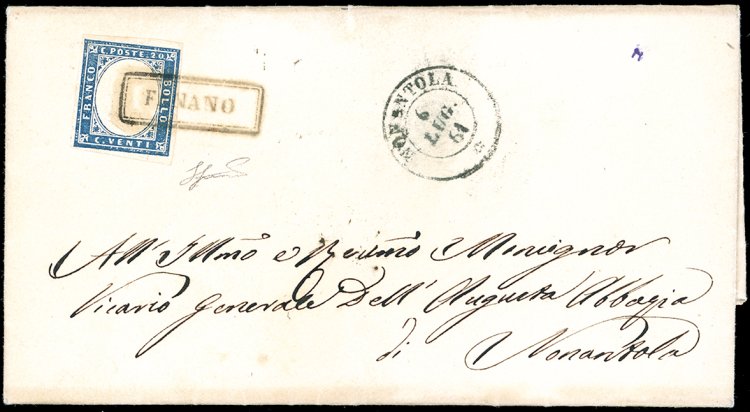 C. POSTE. 20
FRANCO
BOLLO
C. VENTI
FANANO
NONANTOLA
6
LUG.
61
All' Illmo e Revmo Monsignor
Vicario Generale Dell' Augusta Abbazia
di Nonantola